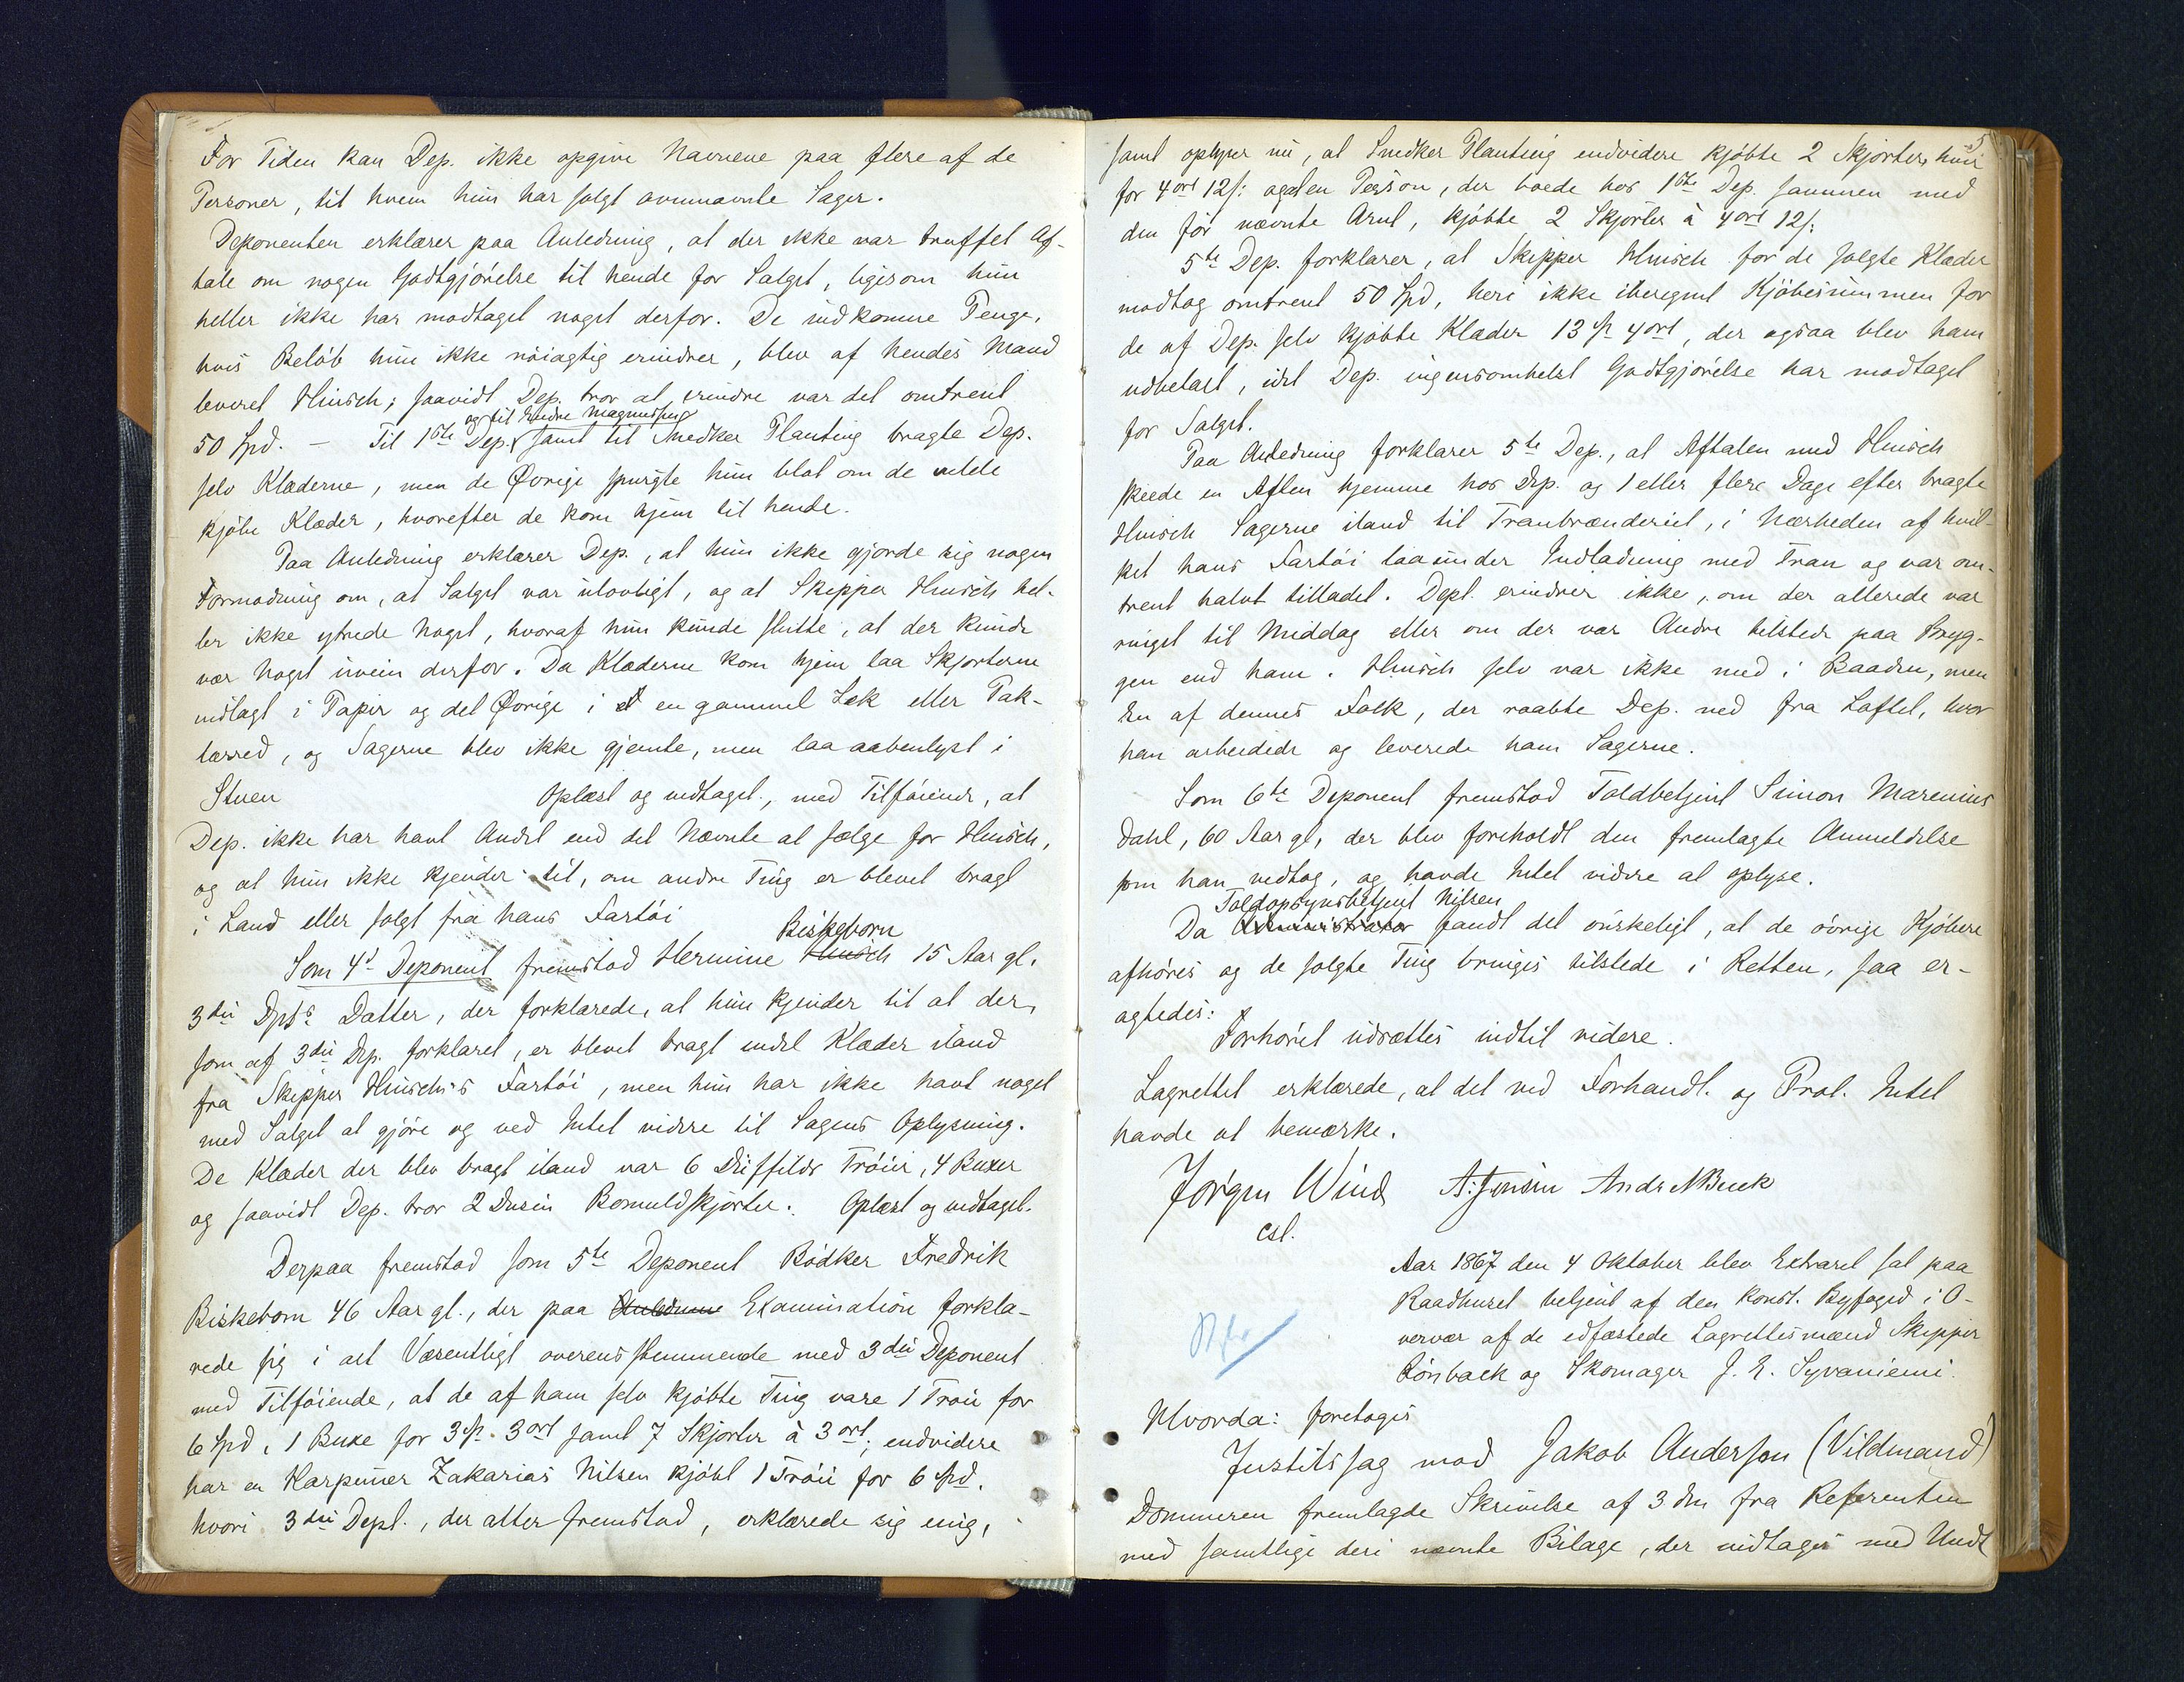 For Tiden kan Dep. ikke opgive Navnene paa flere af de
Personer, til hvem hun har solgt ovennævnte Sager.
Deponenten erklærer paa Anledning, at der ikke var truffet Af-
tale om nogen Godtgjörelse til hende for Salget, ligesom hun
heller ikke har modtaget noget derfor. De indkomne Penge,
hvis Belöb hun ikke nöiagtig erindrer, blev af hendes Mand
leveret Hinsch; saavidt Dep. tror at erindre var det omtrent
og til Endre Magnussen
50 Spd. – Til 1ste Dep. samt til Snedker Planting bragte Dep.
selv Klæderne, men de Øvrige spurgte hun blot om de vilde
kjöbe Klæder, hvorefter de kom hjem til hende.
Paa Anledning erklærer Dep., at hun ikke gjorde sig nogen
Formodning om, at Salget var ulovligt, og at Skipper Hinsch hel-
ler ikke ytrede Noget, hvoraf hun kunde slutte, at der kunde
vær Noget iveien derfor. Da Klæderne kom hjem laa Skjorterne
indlagt i Papir og det Øvrige i et en gammel Sæk eller Pak-
lærred, og Sagerne blev ikke gjemte, men laa aabenlyst i
Stuen Oplæst og vedtaget, med Tilföiende, at
Dep. ikke har havt Andet end det Nævnte at sælge for Hinsch,
og at hun ikke kjender til, om andre Ting er blevet bragt
i Land eller solgt fra hans Fartöi
Biskeborn
Som 4d Deponent fremstod Hermine Hinsch 15 Aar gl.
3die Dpts Datter, der forklarede, at hun kjender til at der,
som af 3die Dep. forklaret, er blevet bragt endel Klæder iland
fra Skipper Hinsch's Fartöi, men hun har ikke havt noget
med Salget at gjöre og ved Intet videre til Sagens Oplysning.
De Klæder der blev bragt iland var 6 Düffilds Tröier, 4 Buxer
og saavidt Dep. tror 2 Dusin Bomuldskjorter. Oplæst og vedtaget.
Derpaa fremstod som 5te Deponent Bödker Fredrik
Biskeborn 46 Aar gl., der paa Anledning Examination forkla-
rede sig i alt Væsentligt overensstemmende med 3die Deponent
med Tilföiende, at de af ham selv kjöbte Ting vare 1 Tröie for
6 Spd, 1 Buxe for 3 Sp. 3 ort samt 7 Skjorter à 3 ort; endvidere
har en Karpenner Zakarias Nilsen kjöbt 1 Tröie for 6 Spd.
hvori 3die Dept., der atter fremstod, erklærede sig enig,
5
samt oplyser nu, at Snedker Planting endvidere kjöbte 2 Skjorter, hver
for 4 ort 12 s: og at en Person, der boede hos 1ste Dep. sammen med
den för nævnte Arnt, kjöbte 2 Skjorter à 4 ort 12 s.
5te Dep. forklarer, at Skipper Hinsch for de solgte Klæder
modtog omtrent 50 Spd, heri ikke iberegnet Kjöbesummen for
de af Dep. selv kjöbte Klæder 13 Sp 4 ort, der ogsaa blev ham
udbetalt, idet Dep. ingensomhelst Godtgjörelse har modtaget
for Salget.
Paa Anledning forklarer 5te Dep., at Aftalen med Hinsch
skeede en Aften hjemme hos Dep. og 1 eller flere Dage efter bragte
Hinsch Sagerne iland til Tranbrænderiet, i Nærheden af hvil-
ket hans Fartöi laa under Indladning med Tran og var om-
trent halvt tilladet. Dept. erindrer ikke, om der allerede var
ringet til Middag eller om der var Andre tilstede paa Bryg-
gen end ham. Hinsch selv var ikke med i Baaden, men
En af dennes Folk, der raabte Dep. ned fra Loftet, hvor
han arbeidede og leverede ham Sagerne.
Som 6te Deponent fremstod Toldbetjent Simon Marenius
Dahl, 60 Aar gl, der blev foreholdt den fremlagte Anmeldelse
som han vedtog, og havde Intet videre at oplyse.
Toldopsynsbetjent Nilsen
Da Administrator fandt det önskeligt, at de övrige Kjöbere
afhöres og de solgte Ting bringes tilstede i Retten, saa er-
agtedes:
Forhöret udsættes indtil videre.
Lagrettet erklærede, at det ved Forhandl. og Prot. Intet
havde at bemærke.
Jörgen Wind A: Jensen Andr NBuck
cst.
Aar 1867 den 4 Oktober blev Extraret sat paa
Raadhuset betjent af den konst. Byfoged i O-
vervær af de edfæstede Lagrettesmænd Skipper
Fönback og Skomager J. E. Syvaniemi.
Hvorda: foretoges
Justitssag mod Jakob Anderssen (Vildmand)
Dommeren fremlagde Skrivelse af 3 dm fra Referenten
med samtlige deri nævnte Bilage, der indtages med Undt